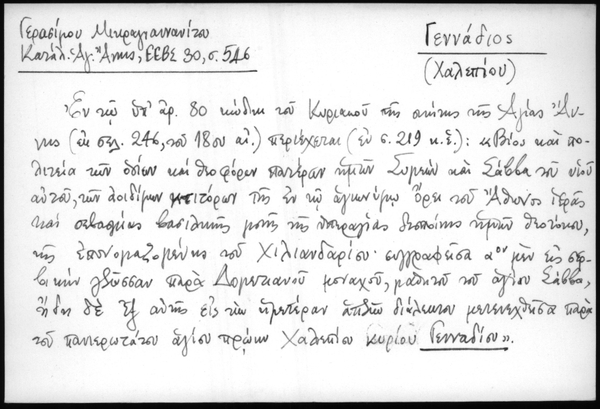 Γερασίμου Μικραγιαννανίτου
Κατάλ. Αγ. Ἄννης, ΕΕΒΣ 30, σ. 546
Γεννάδιος
(Χαλεπίου)
Ἐν τῷ ὑπ' ἀρ. 80 κώδικι τοῦ Κυριακοῦ τῆς σκήτης τῆς Ἁγίας Ἄν-
νης (ἐκ σελ. 246, τοῦ 18ου αἰ.) περιέχεται (ἐν σ. 219 κ.ἑ.): «Βίος καὶ πο-
λιτεία τῶν ὁσίων καὶ θεοφόρων πατέρων ἡμῶν Συμεὼν καὶ Σάββα τοῦ υἱοῦ
αὐτοῦ, τῶν ἀοιδίμων κτιτόρων τῆς ἐν τῷ ἁγιωνύμῳ Ὄρει τοῦ Ἄθωνος ἱερᾶς
καὶ σεβασμίας βασιλικῆς μονῆς τῆς ὑπεραγίας δεσποίνης ἡμῶν Θεοτόκου,
τῆς ἐπονομαζομένης τοῦ Χιλιανδαρίου· συγγραφεῖσα αον μὲν εἰς σερ-
βικὴν γλῶσσαν παρὰ Δομετιανοῦ μοναχοῦ, μαθητοῦ τοῦ ἁγίου Σάββα,
ἤδη δὲ ἐξ αὐτῆς εἰς τὴν ἡμετέραν ἁπλῆν διάλεκτον μετενεχθεῖσα παρὰ
τοῦ πανιερωτάτου ἁγίου πρώην Χαλεπίου κυρίου Γενναδίου».